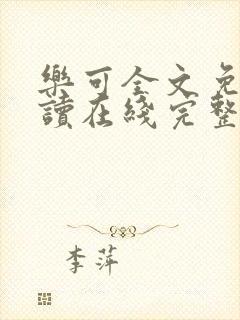 樂可全文免
讀在綫完整
李萍